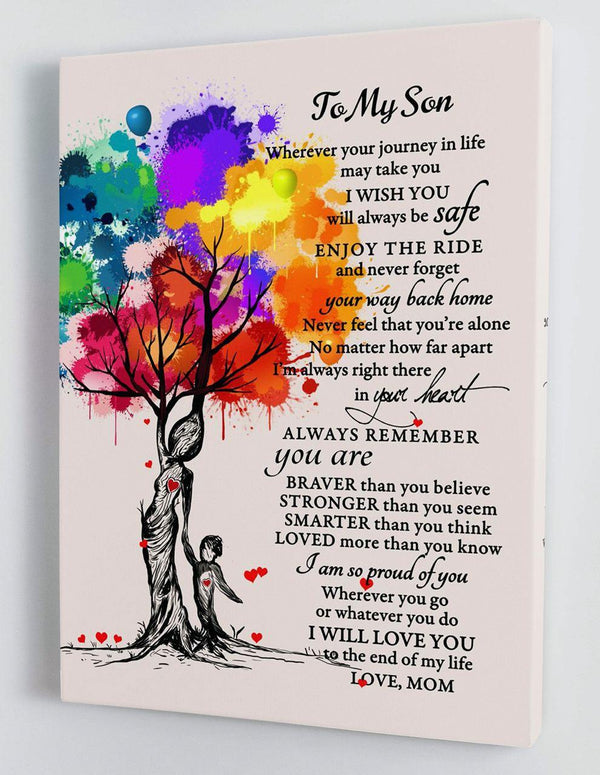 To My Son
Wherever your journey in life
may take you
I WISH YOU
will always be safe
ENJOY THE RIDE
and never forget
your way back home
Never feel that you're alone
No matter how far apart
I'm always right there
in your heart
ALWAYS REMEMBER
you are
BRAVER than you believe
STRONGER than you seem
SMARTER than you think
LOVED more than you know
I am so proud of you
Wherever you go
or whatever you do
I WILL LOVE YOU
to the end of my life
LOVE, MOM